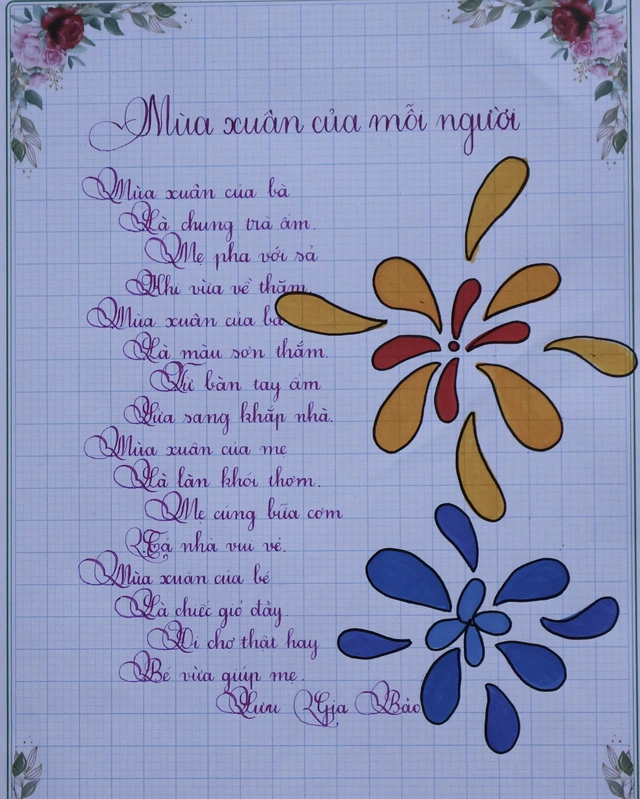 Mùa xuân của mỗi người
Mùa xuân của bà
Là chung trà ấm.
Mẹ pha với sả
Khi vừa về thăm.
Mùa xuân của ba
Là màu sơn thắm.
Từ bàn tay ấm
Sửa sang khắp nhà.
Mùa xuân của mẹ
Là làn khói thơm.
Mẹ cúng bữa cơm
Cả nhà vui vẻ.
Mùa xuân của bé
Là chiếc giỏ đầy
Đi chợ thật hay
Bé vừa giúp mẹ.
Lưu Gia Bảo